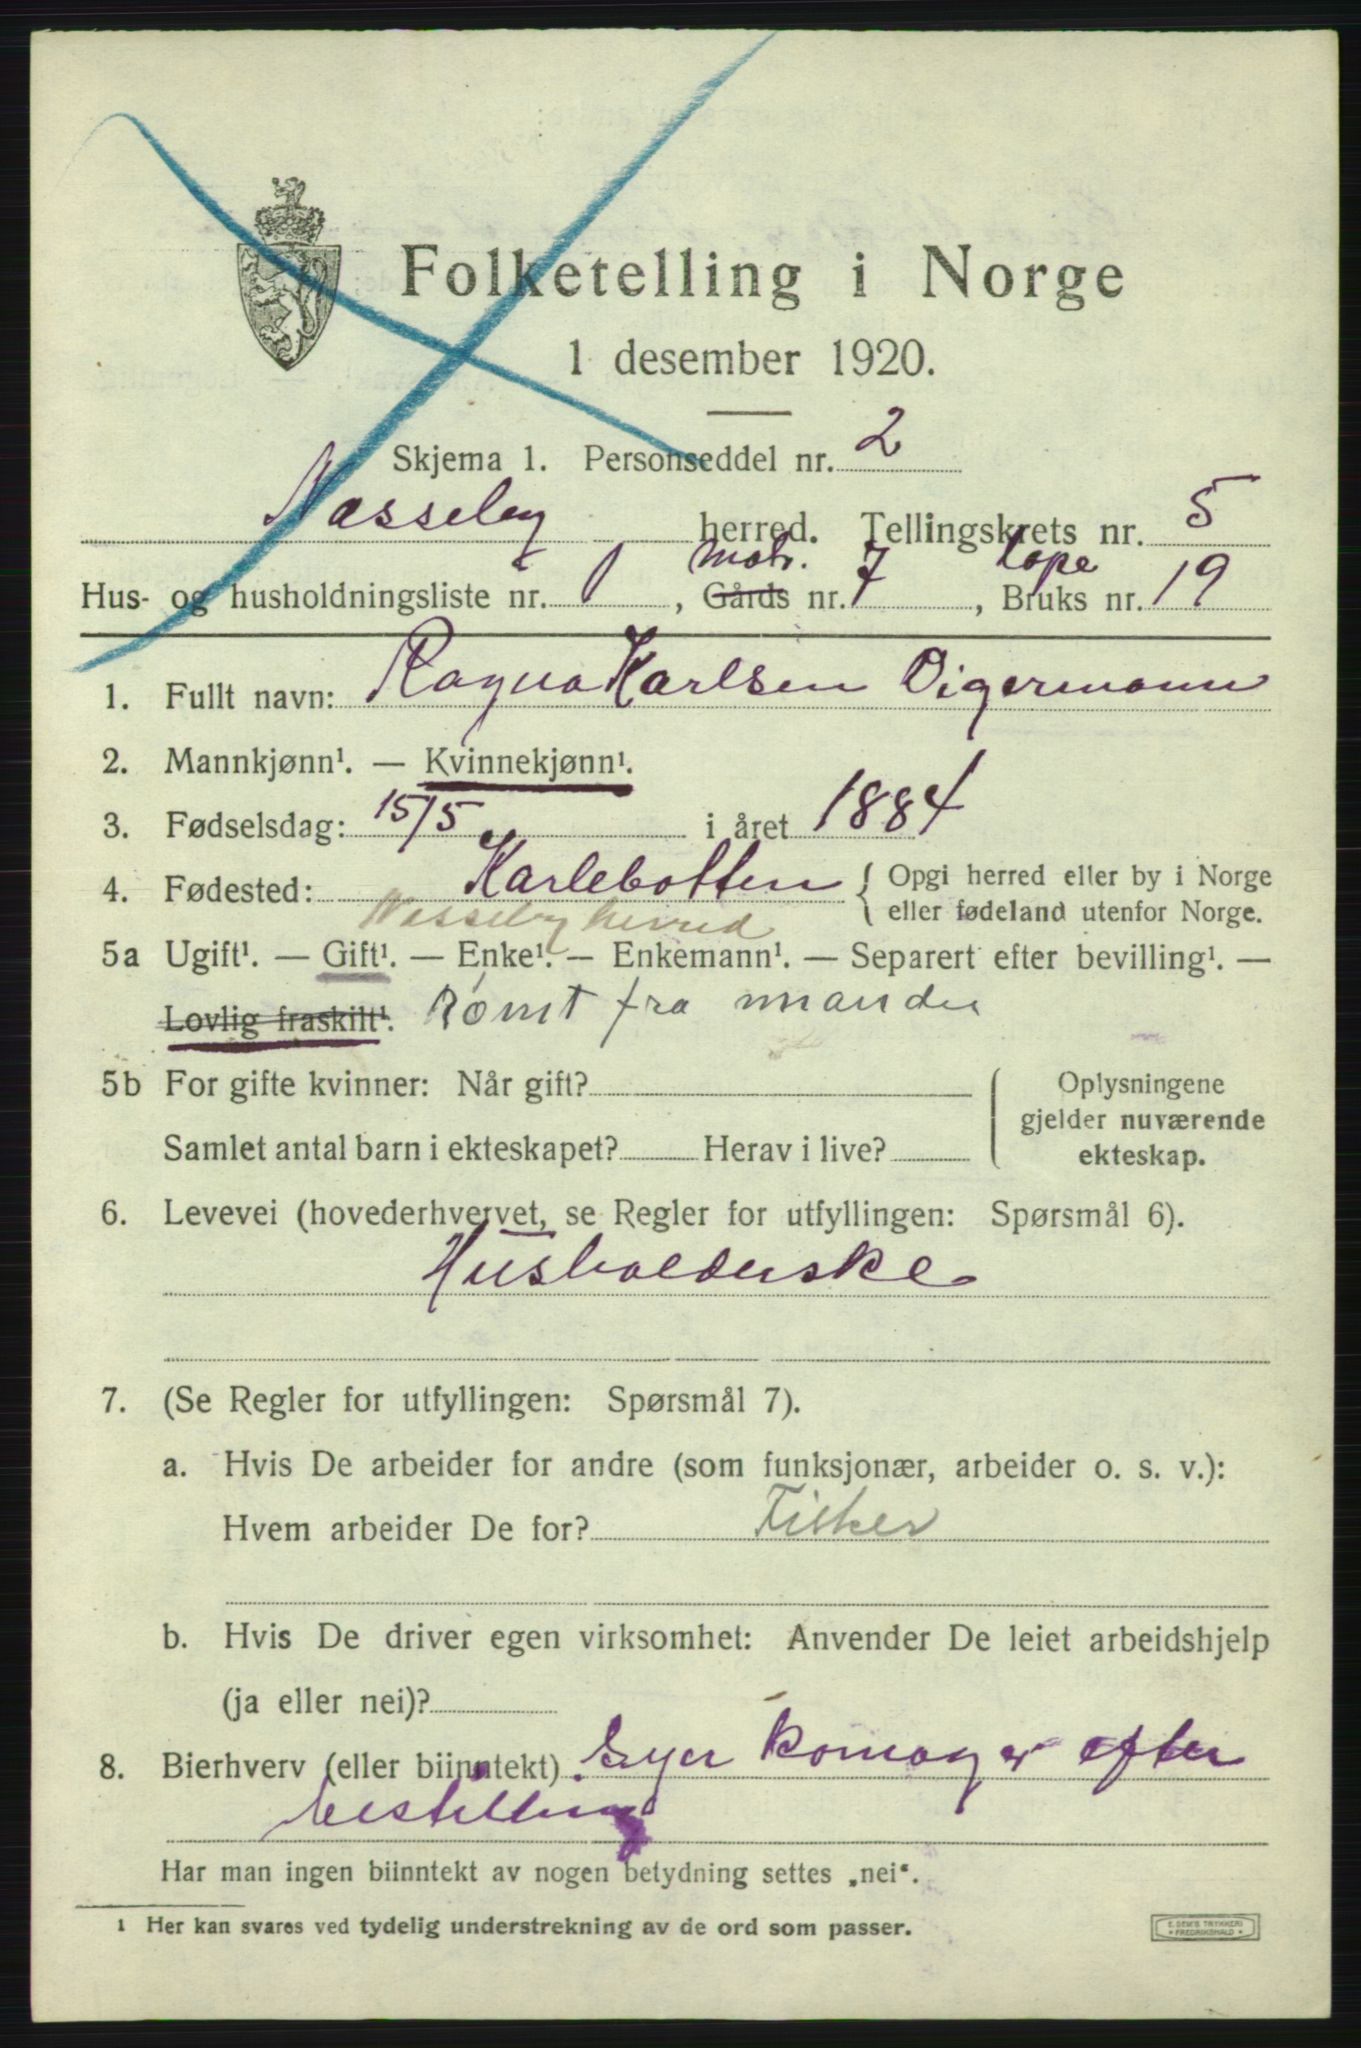 Folketelling i Norge
1 desember 1920.
Skjema 1. Personseddel nr. 2
Nesseby herred. Tellingskrets nr. 5
matr. løpe
Hus- og husholdningsliste nr. 1, Gårds nr. 7, Bruks nr. 19
1. Fullt navn: Ragna Karlsen Oigermann
2. Mannkjønn¹. — Kvinnekjønn¹.
3. Fødselsdag: 15/5 i året 1884
4. Fødested: Karlebotten { Opgi herred eller by i Norge
eller fødeland utenfor Norge.
Nesseby herred
5a Ugift¹. — Gift¹. — Enke¹. — Enkemann¹. — Separert efter bevilling¹. —
Lovlig fraskilt¹. Rømt fra manden
5b For gifte kvinner: Når gift?
Samlet antal barn i ekteskapet? Herav i live?
Oplysningene
gjelder nuværende
ekteskap.
6. Levevei (hovederhvervet, se Regler for utfyllingen: Spørsmål 6).
Husholderske
7. (Se Regler for utfyllingen: Spørsmål 7).
a. Hvis De arbeider for andre (som funksjonær, arbeider o. s. v.):
Hvem arbeider De for? Fisker
b. Hvis De driver egen virksomhet: Anvender De leiet arbeidshjelp
(ja eller nei)?
8. Bierhverv (eller biinntekt) Syer komager efter
bestilling
Har man ingen biinntekt av nogen betydning settes „nei“.
1 Her kan svares ved tydelig understrekning av de ord som passer.
E. SEM'S TRYKKERI
FREDRIKSHALD